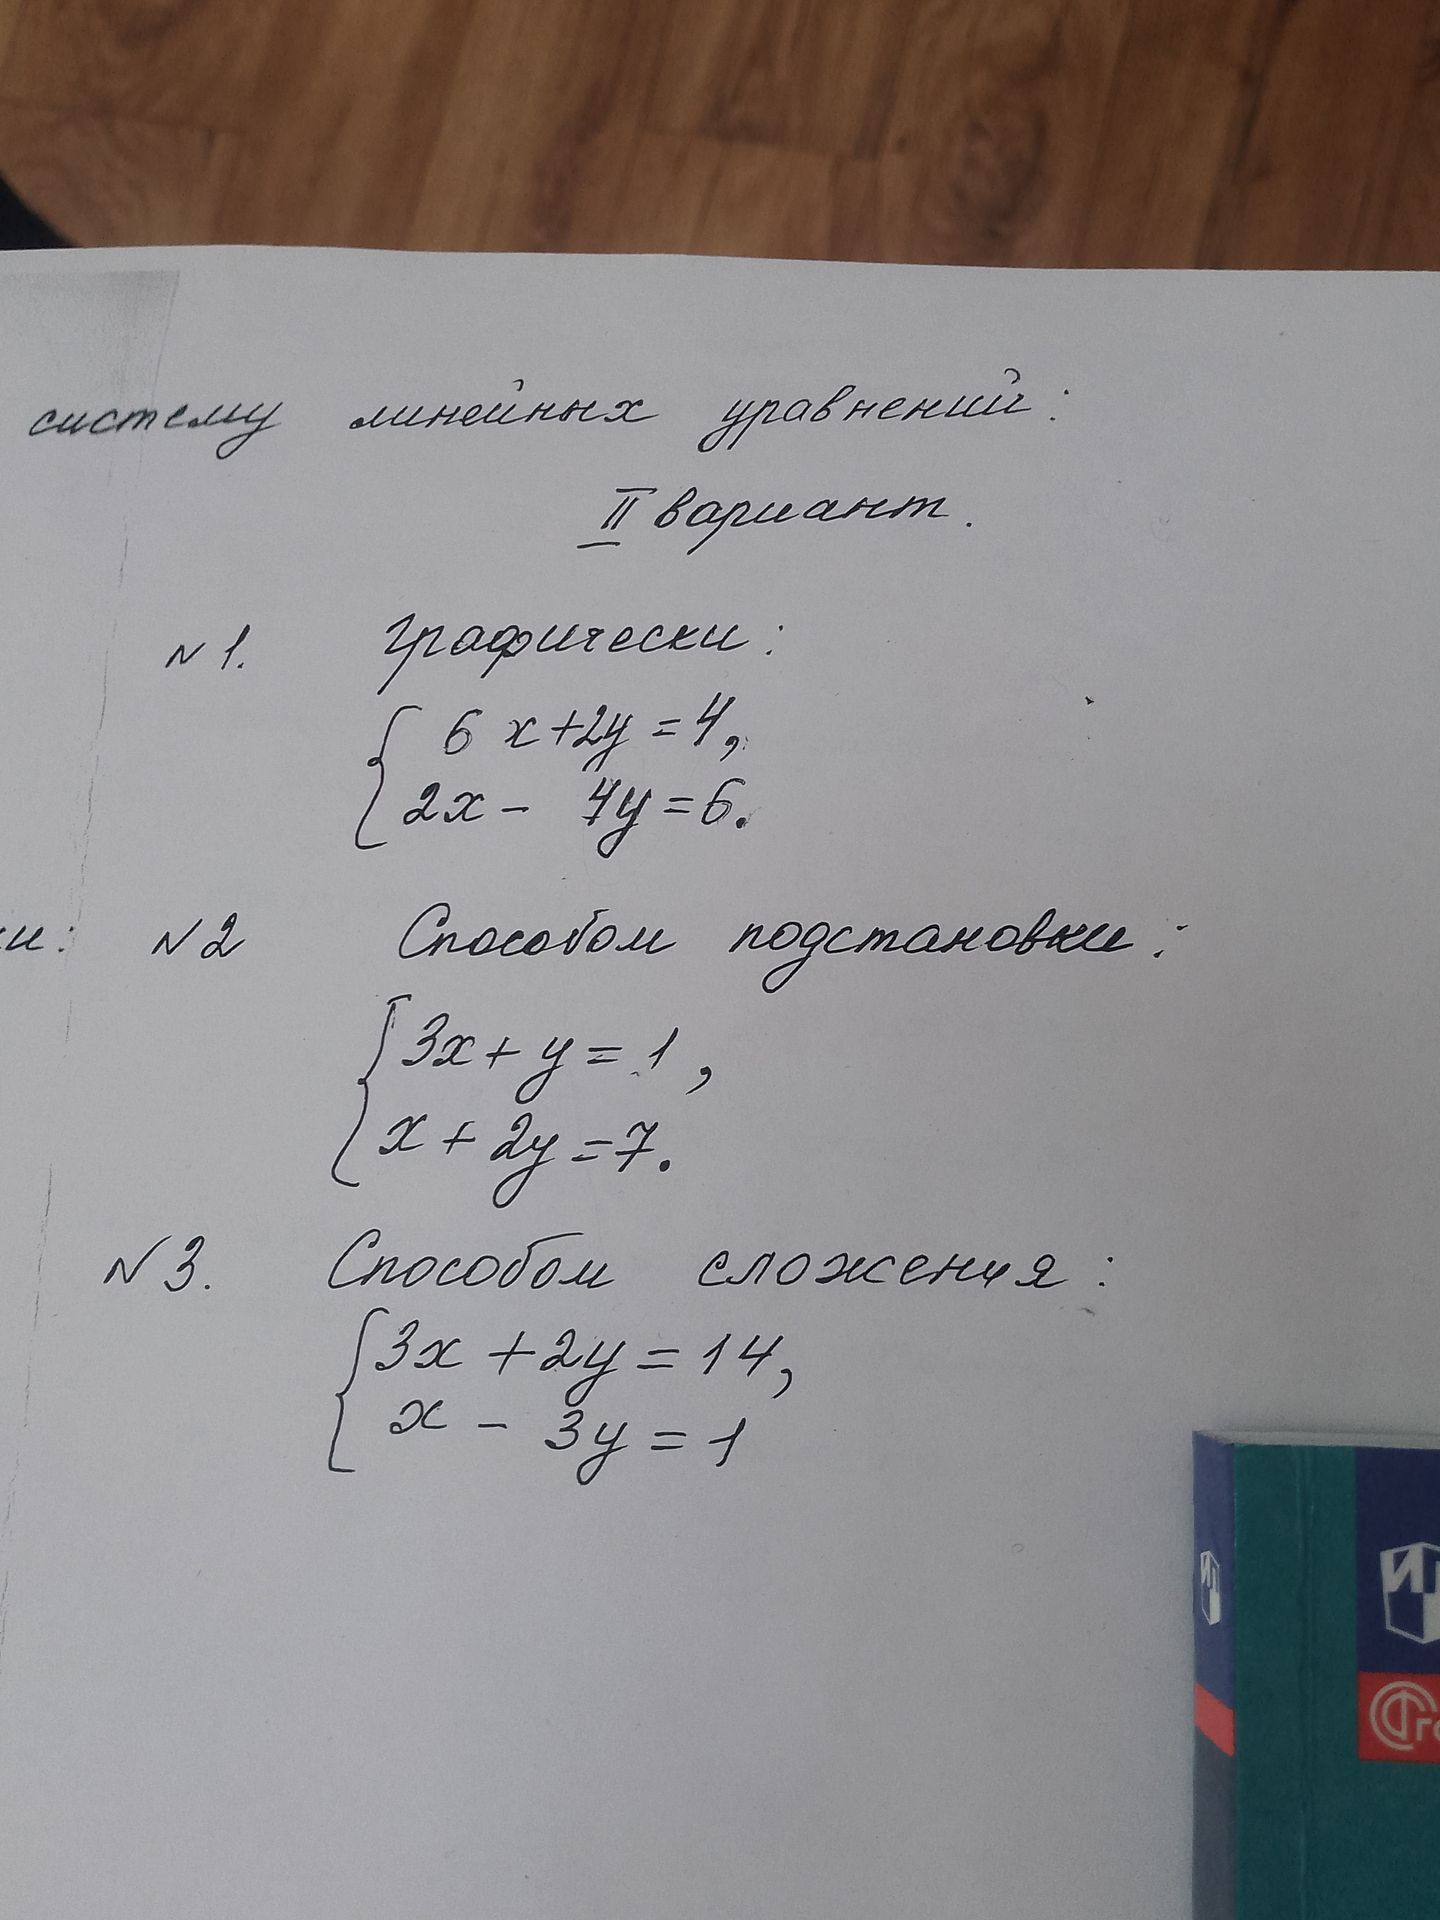 систему линейных уравнений:
II вариант.
N1. Графически:
6x+2y=4,
2x- 4y=6.
ки: N2 Способом подстановки:
3x+y=1,
x+2y=7.
N3. Способом сложения:
3x+2y=14,
x-3y=1